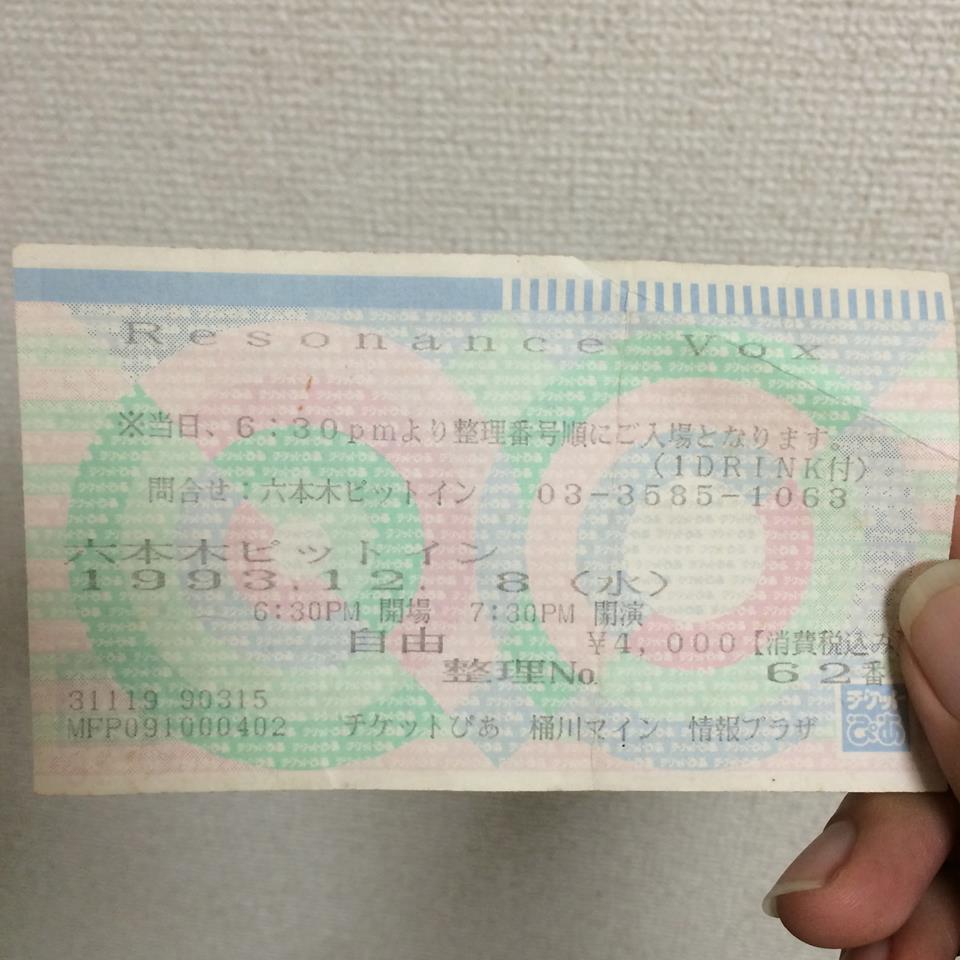 Resonance Vox
※当日、6:30pmより整理番号順にご入場となります。
(1DRINK付)
問合せ:六本木ピットイン 03-3585-1063
六本木ピットイン
1993.12. 8(水)
6:30PM 開場 7:30PM 開演
自由 ¥4,000【消費税込み
整理No. 62番
31119 90315
MFP091000402 チケットぴあ 桶川マイン 情報プラザ
チケット
ぴあ